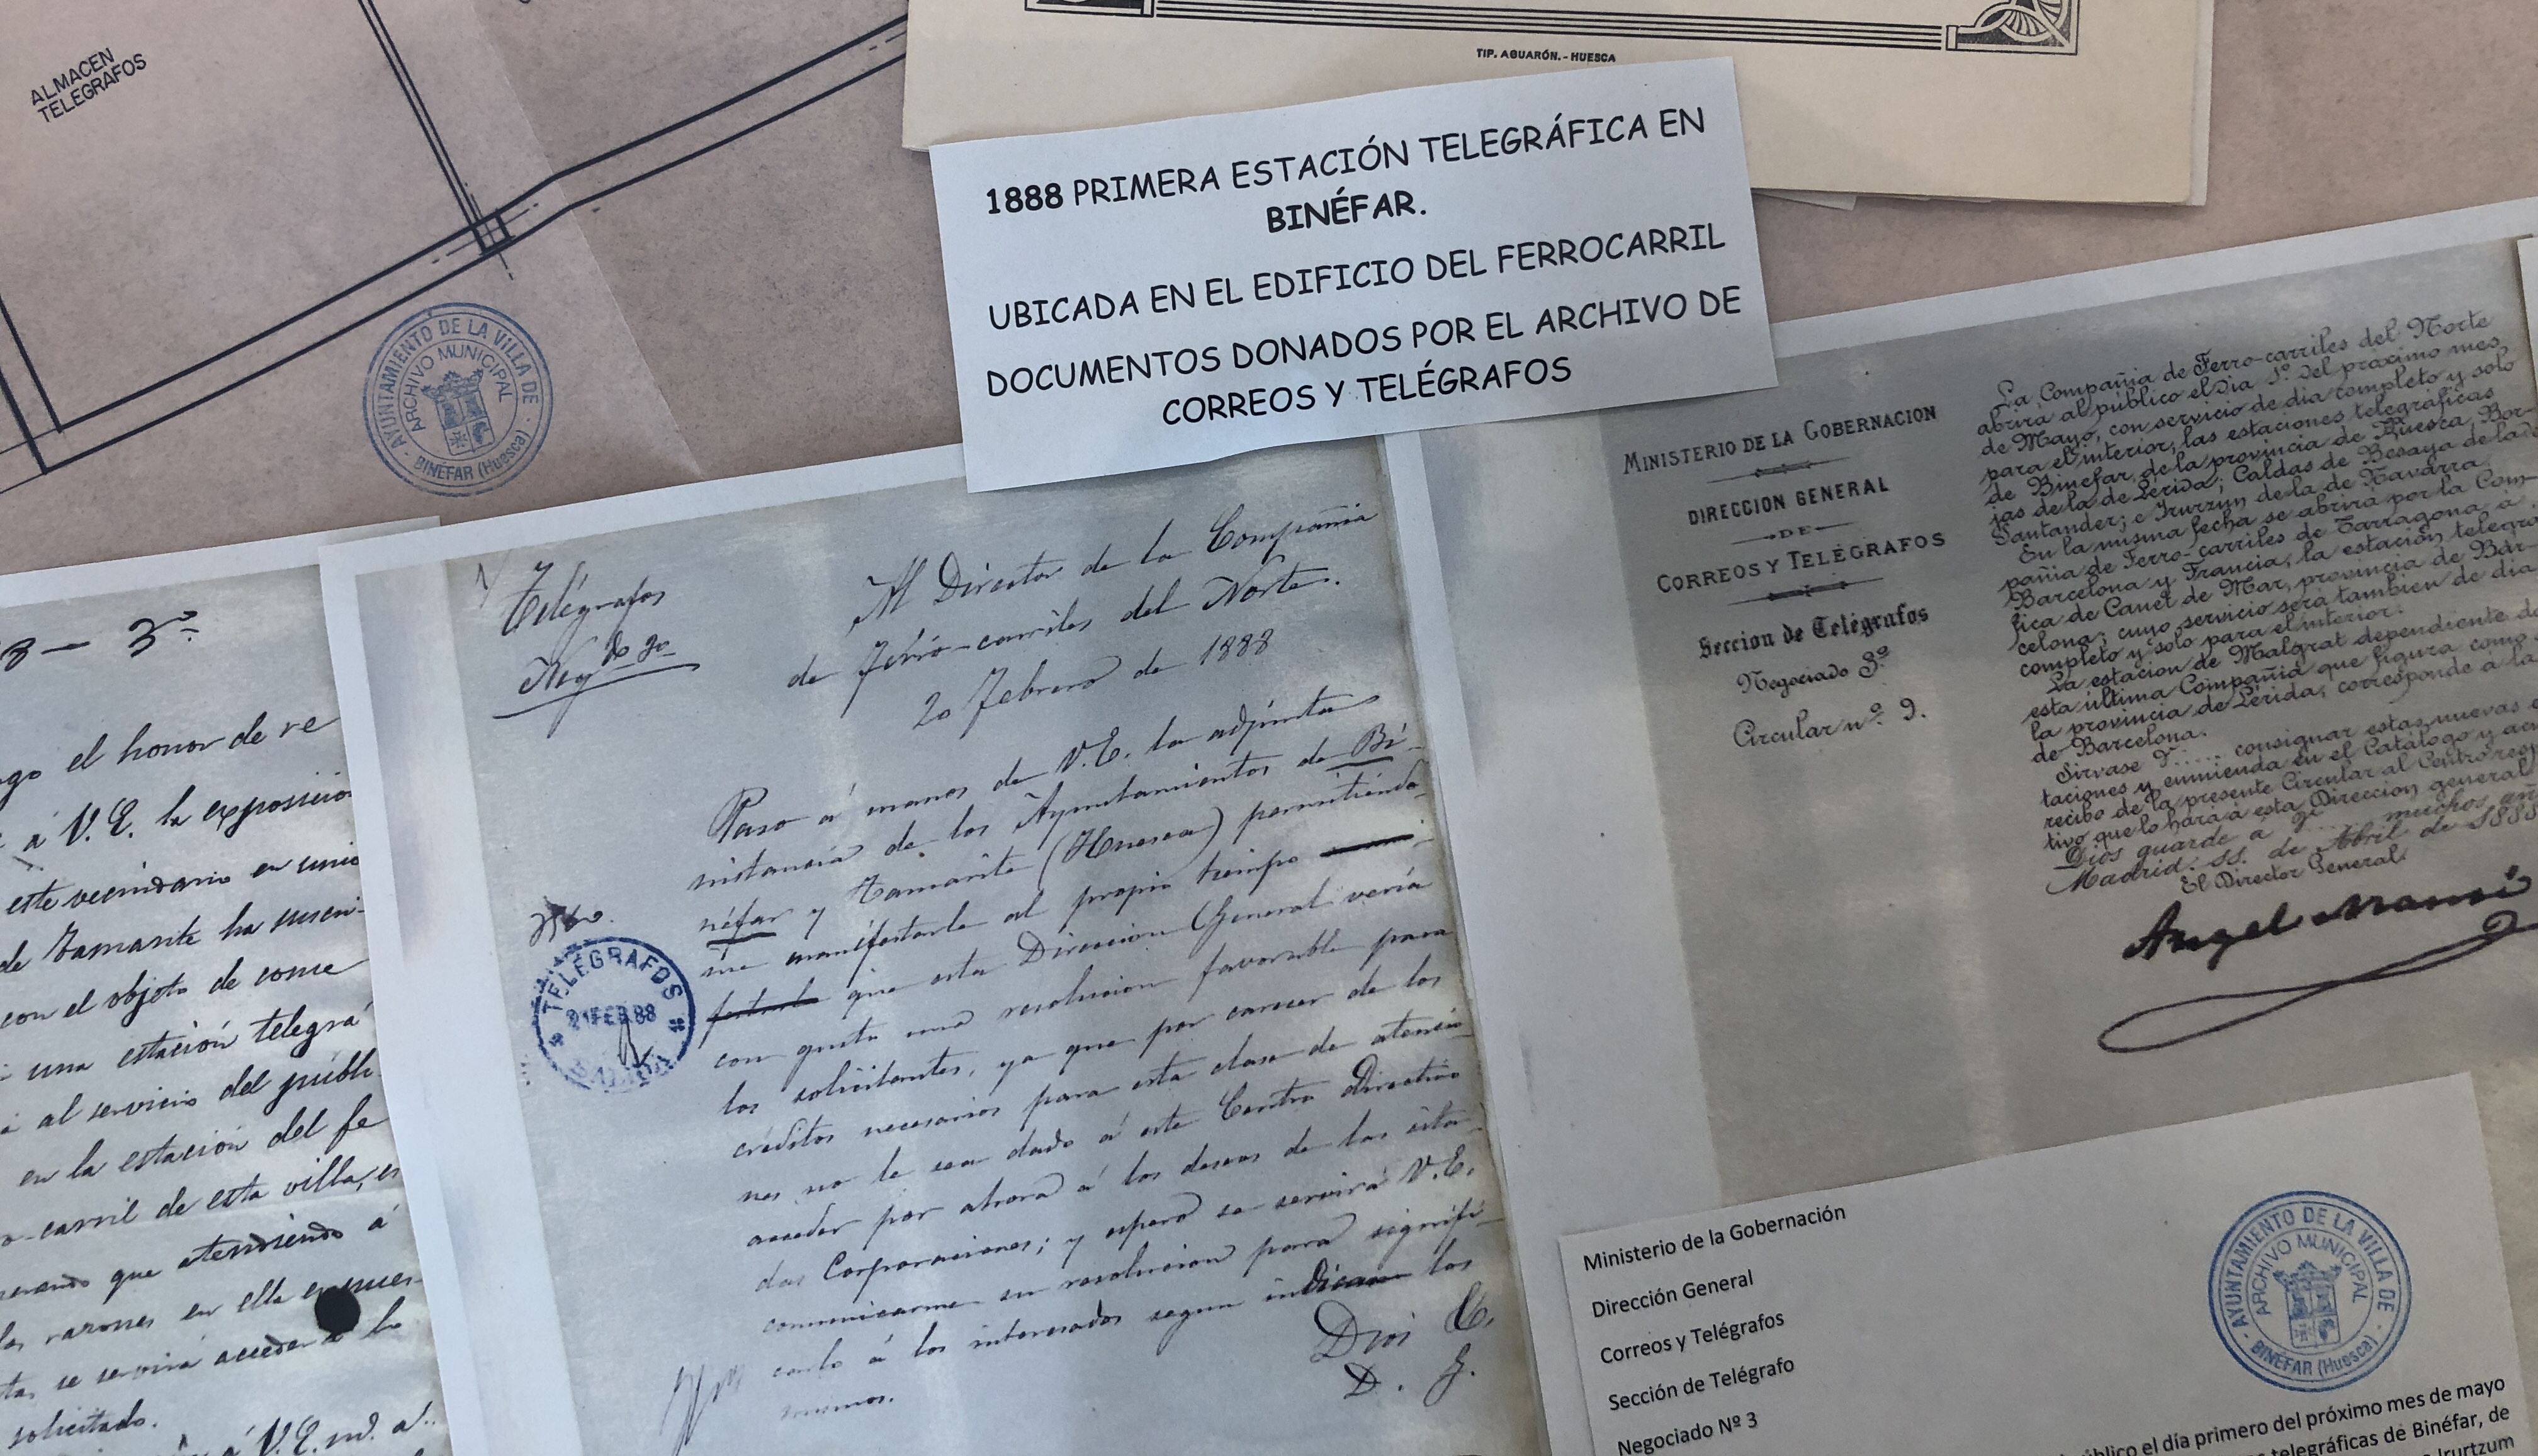 ALMACEN
TELEGRAFOS
TIP. AGUARÓN.-HUESCA
1888 PRIMERA ESTACIÓN TELEGRÁFICA EN
BINÉFAR.
UBICADA EN EL EDIFICIO DEL FERROCARRIL
DOCUMENTOS DONADOS POR EL ARCHIVO DE
CORREOS Y TELÉGRAFOS
AYUNTAMIENTO DE LA VILLA DE
ARCHIVO MUNICIPAL
BINÉFAR (Huesca)
8 - 3º
el honor de re
á V. E. la exposición
este vecindario en unió
de Tamarite ha suscri-
con el objeto de conse
una estación telegrá
al servicio del públi-
en la estación del fe
o-carril de esta villa, es
que atendiendo á
las razones en ella expues-
se servirá acceder á lo
solicitado.
á V. E. m. a.
Telégrafos
Negdo 3o
Al Director de la Compañia
de Ferro-carriles del Norte.
20 Febrero de 1888
Paso á manos de V. E. la adjunta
instancia de los Ayuntamientos de Bi-
néfar y Tamarite (Huesca) permitiendo
me manifestarle al propio tiempo
que esta Direccion General veria
con gusto una resolucion favorable para
los solicitantes, ya que por carecer de los
créditos necesarios para esta clase de atencio
nes no le sea dado á este Centro Directivo
acceder por ahora á los deseos de las cita
das Corporaciones; y espero se servirá V. E.
comunicarme su resolucion para signifi-
carlo á los interesados segun indican los
mismos.
Dios G.
D. G.
TELEGRAFOS
21 FEB 88
MINISTERIO DE LA GOBERNACION
DIRECCION GENERAL
DE
CORREOS Y TELEGRAFOS
Seccion de Telégrafos
Negociado 3º
Circular nº. 9.
La Compañia de Ferro-carriles del Norte
abrirá al público el dia 1º. del próximo mes
de Mayo, con servicio de dia completo y solo
para el interior, las estaciones telegráficas
de Binefar, de la provincia de Huesca, Bor-
jas de la de Lérida; Caldas de Besaya de la de
Santander; é Irurzun de la de Navarra.
En la misma fecha se abrirá por la Com-
pañia de Ferro-carriles de Tarragona á
Barcelona y Francia, la estación telegrá
fica de Canet de Mar, provincia de Bar-
celona; cuyo servicio será tambien de dia
completo y solo para el interior.
La estacion de Malgrat dependiente de
esta última Compañia que figura como
la provincia de Lérida, corresponde a la
de Barcelona.
Sirvase V..... consignar estas nuevas
taciones y enmienda en el Catálogo y
recibo de la presente Circular al Centro respec
tivo que lo hará á esta Direccion general.
Dios guarde á V..... muchos
Madrid de Abril de 1888
El Director General.
Angel Mansi
Ministerio de la Gobernación
Dirección General
Correos y Telégrafos
Sección de Telégrafo
Negociado Nº 3
AYUNTAMIENTO DE LA VILLA DE
ARCHIVO MUNICIPAL
BINÉFAR (Huesca)
el día primero del próximo mes de mayo
telegráficas de Binéfar, de
Irurtzum